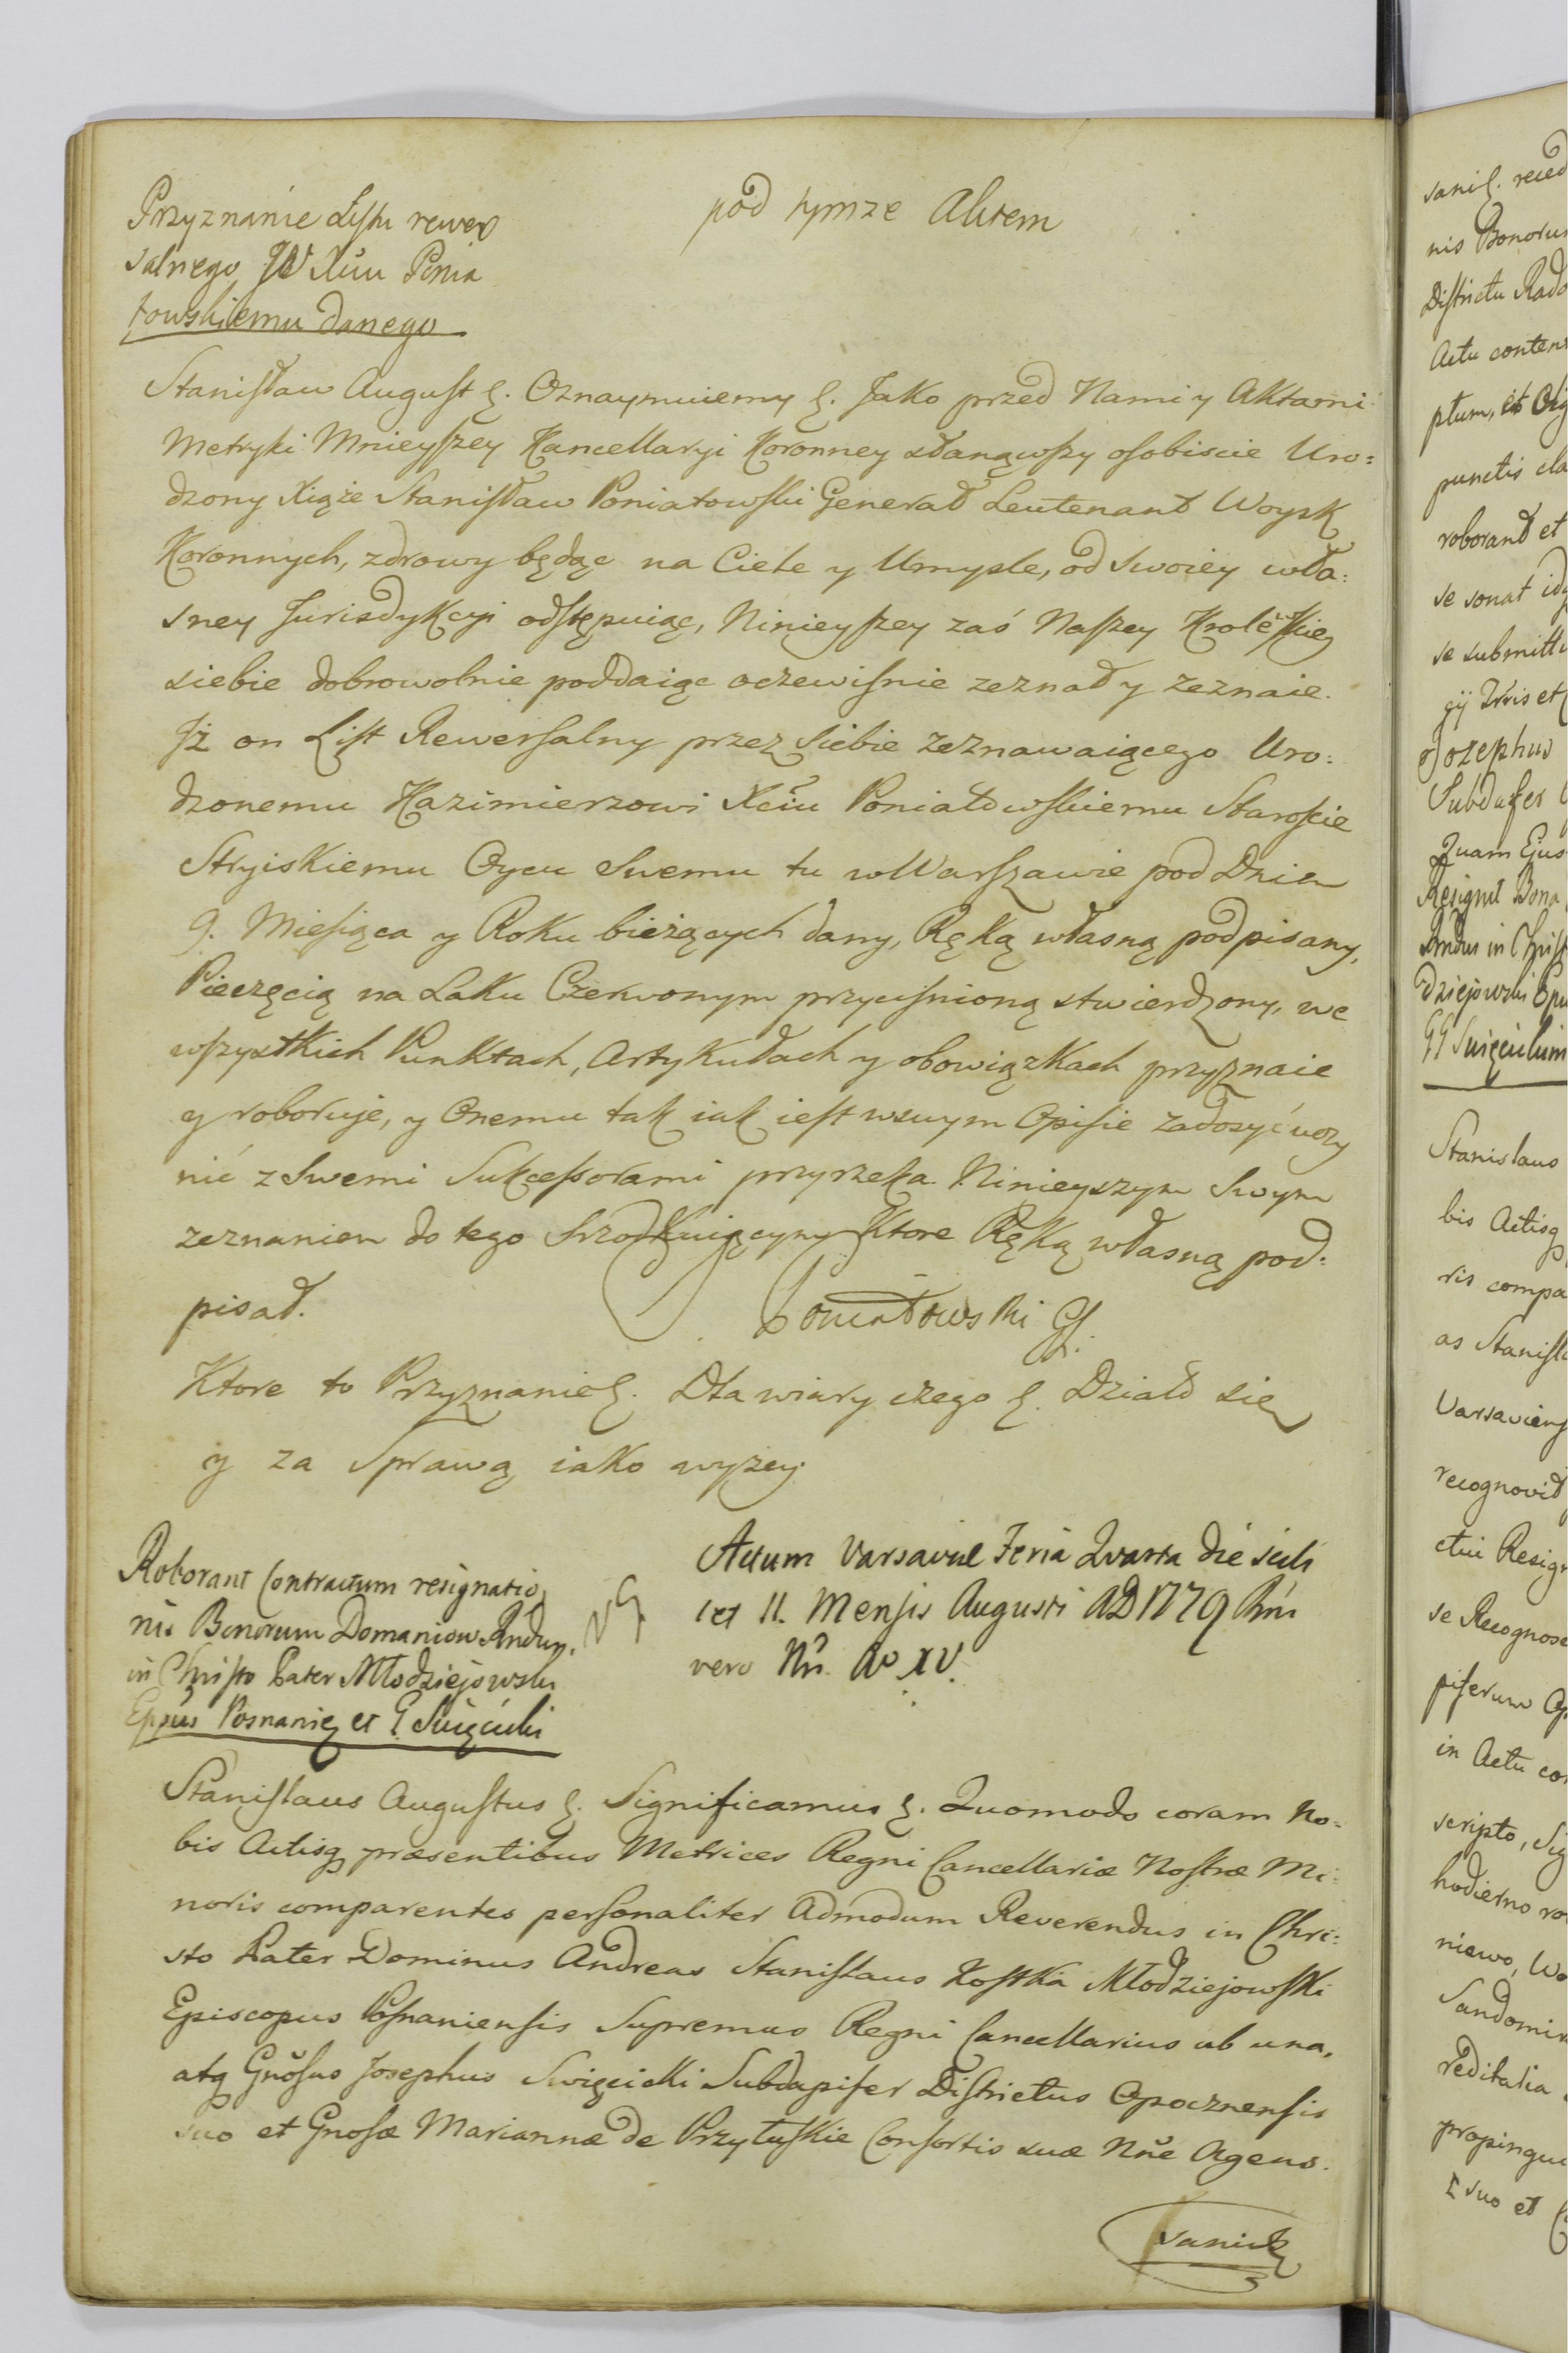 Przyznanie Listu rewer
salnego JW Xciu Ponia
towskiemu danego
pod tymze Aktem
Stanisław August &. Oznaymuiemy &. Jako przed Nami y Aktami
Metryki Mnieyszey Kancellaryi Koronney stanąwszy osobiscie Uro=
dzony Xiąże Stanisław Poniatowski Generał Leutenant Woysk
Koronnych, zdrowy będąc na Ciele y Umysle, od swoiey wła=
sney Jurisdykcyi odstępuiąc, Ninieyszey zaś Naszey Krolewskiey
siebie dobrowolnie poddaiąc oczewisnie zeznał y zeznaie.
Jż on List Rewersalny przez siebie zeznawaiącego Uro=
dzonemu Kazimierzowi Xciu Poniatowskiemu Staroscie
Stryiskiemu Oycu Swemu tu w Warszawie pod Dniem
9. Miesiąca y Roku bieżących dany, Ręką własną podpisany,
Pieczęcią na Laku Czerwonym przycisnioną stwierdzony, we
wszystkich Punktach, Artykułach y obowiązkach przyznaie
y roboruje, y Onemu tak iak iest wswym Opisie zadosyć uczy
nić z Swemi Sukcessorami przyrzeka Ninieyszym Swym
zeznaniem do tego Srzodkuiącym Ktore Ręką własną pod=
pisał. Poniatowski GL.
Ktore to Przyznanie &. Dla wiary czego &. Działo się
y za Sprawą iako wyżey
Roborant Contractum resignatio
nis Bonorum Domaniow Rndus.
in Christo Pater Młodziejowski
Eppus Posnanię et G Swięcicki
Actum Varsaviæ Feria Quarta die scili
cet 11. Mensis Augusti AD 1779 Rni
vero Nri. Ao XV.
Stanislaus Augustus &. Significamus &. Quomodo coram No=
bis Actisq præsentibus Metrices Regni Cancellariæ Nostræ Mi=
noris comparentes personaliter Admodum Reverendus in Chri=
sto Pater Dominus Andreas Stanislaus Kostka Młodziejowski
Episcopus Posnaniensis Supremus Regni Cancellarius ab una,
atq Gnosus Josephus Swięcicki Subdapifer Districtus Opocznensis
suo et Gnosæ Mariannæ de Przyłuskie Consortis suæ Nne Agens.
sanis
sanis. reced
nis Bonorum
Districtu Rado
Actu conten
ptum, et Orig
punctis cla
roborant et
se sonat id
se submitt
gÿ Uris et
Josephus
Subdapfer
Quam Ejus
Resignt Bona
Rndus in Christ
dziejowski Epu
GG Swięcickim
Stanislaus
bis Actisq
ris compa
as Stanisl
Varsaviens
recognovit
ctui Resign
se Recognosc
piferum Op
in Actu co
scripto, Sig
hodierno ro
niewo, Wo
Sandomir
reditalia
propinqu
suo et